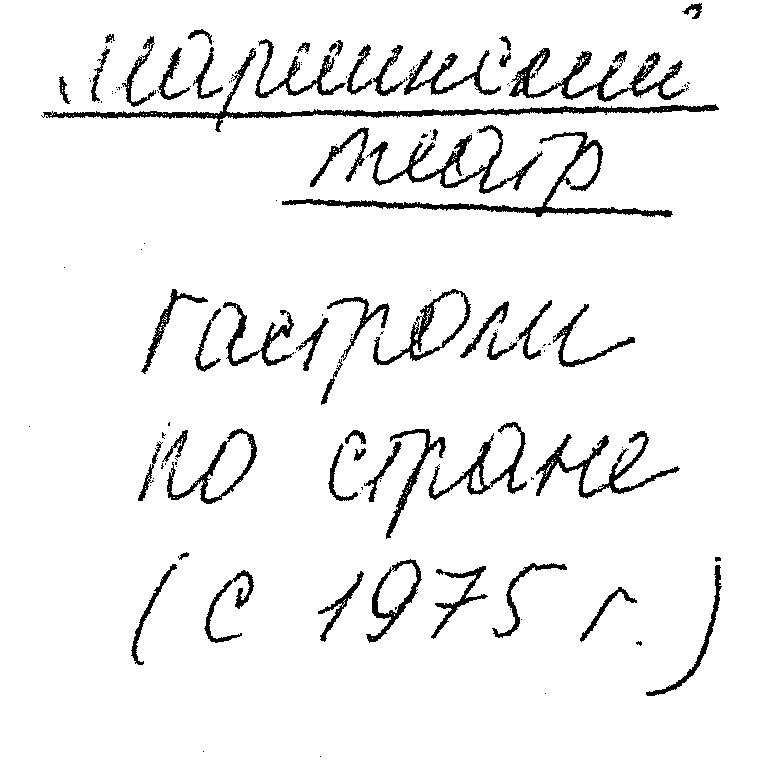 Мариинский
театр
гастроли
по стране
(с 1975 г.)